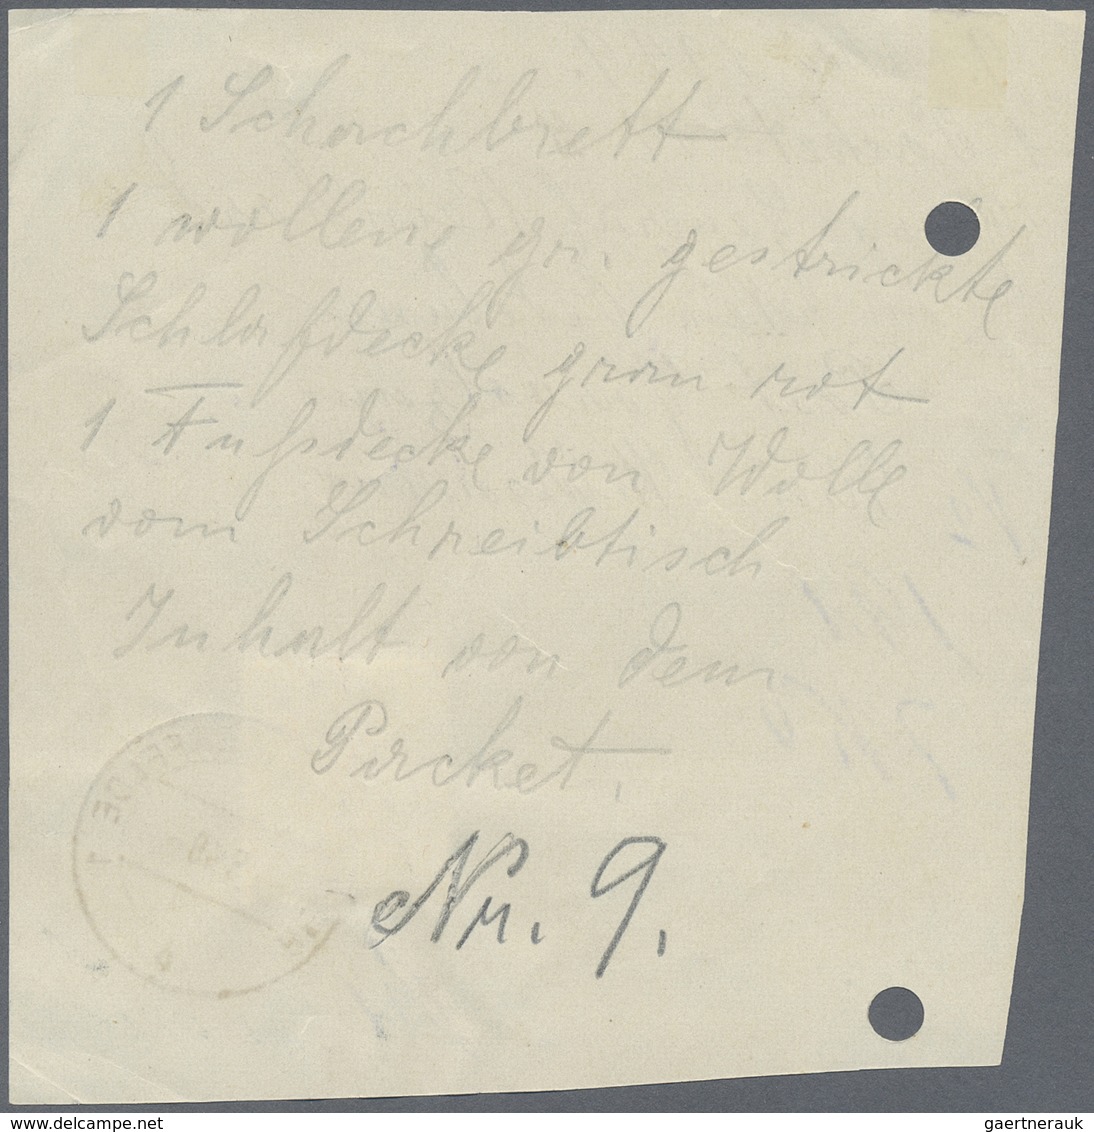 1 Schachbrett
1 wollene gr. gestrickte
Schlafdecke grau rot
1 Fußdecke von Wolle
vom Schreibtisch
Inhalt von dem
Packet.
Nr. 9.
gaertnerauk
www.delcampe.net